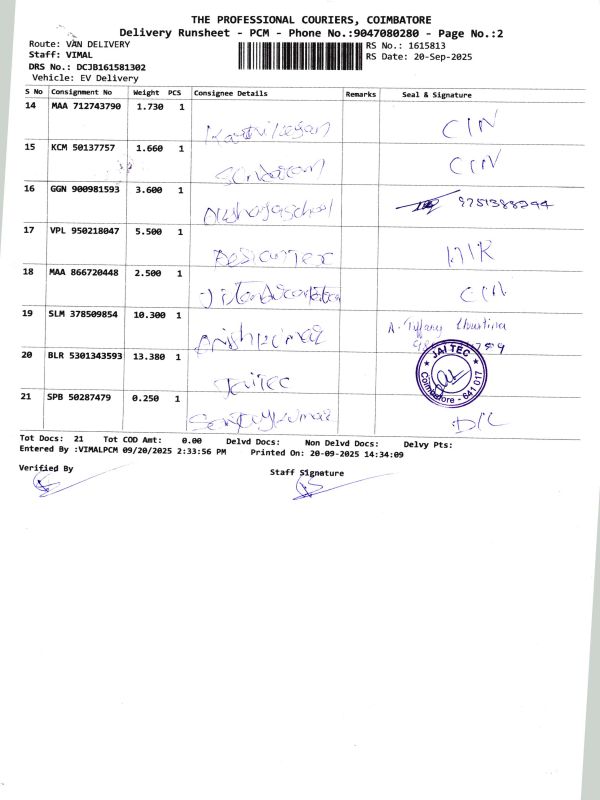 THE PROFESSIONAL COURIERS, COIMBATORE
Delivery Runsheet - PCM - Phone No.:9047080280 - Page No.:2
Route: VAN DELIVERY
RS No.: 1615813
Staff: VIMAL
RS Date: 20-Sep-2025
DRS No.: DCJB161581302
Vehicle: EV Delivery
S No Consignment No Weight PCS Consignee Details Remarks Seal & Signature
14 MAA 712743790 1.730 1 CIN
15 KCM 50137757 1.660 1 CIN
16 GGN 900981593 3.600 1
17 VPL 950218047 5.500 1
18 MAA 866720448 2.500 1 CIN
19 SLM 378509854 10.300 1 A. Tiffany
20 BLR 5301343593 13.380 1 Jaitec JAI TEC Coimbatore - 641 017
21 SPB 50287479 0.250 1 D/L
Tot Docs: 21 Tot COD Amt: 0.00 Delvd Docs: Non Delvd Docs: Delvy Pts:
Entered By :VIMALPCM 09/20/2025 2:33:56 PM Printed On: 20-09-2025 14:34:09
Verified By Staff Signature